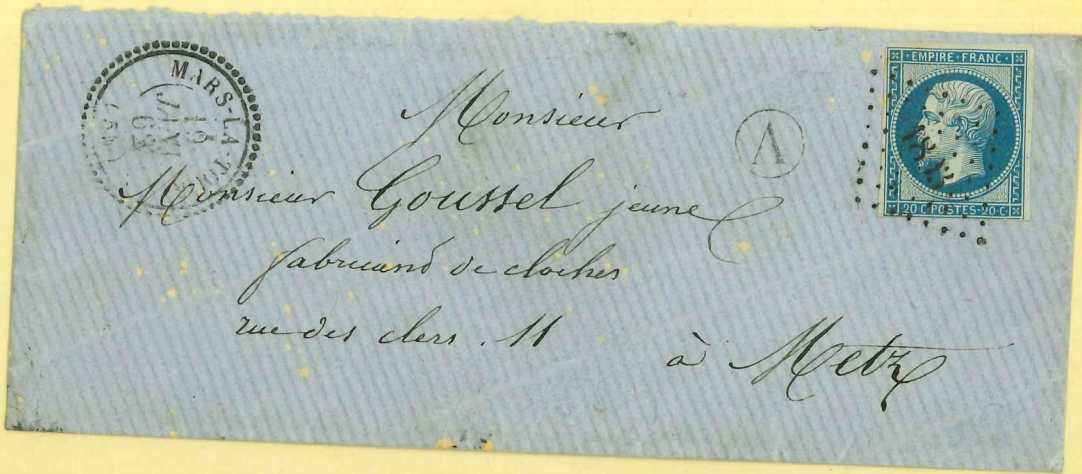 MARS-LA-TOUR
15
JANV
62
(52)
A
EMPIRE·FRANC·
20 C·POSTES·20 C·
Monsieur
Monsieur Goussel jeune
fabricand de cloches
rue des clers . 11
à Metz